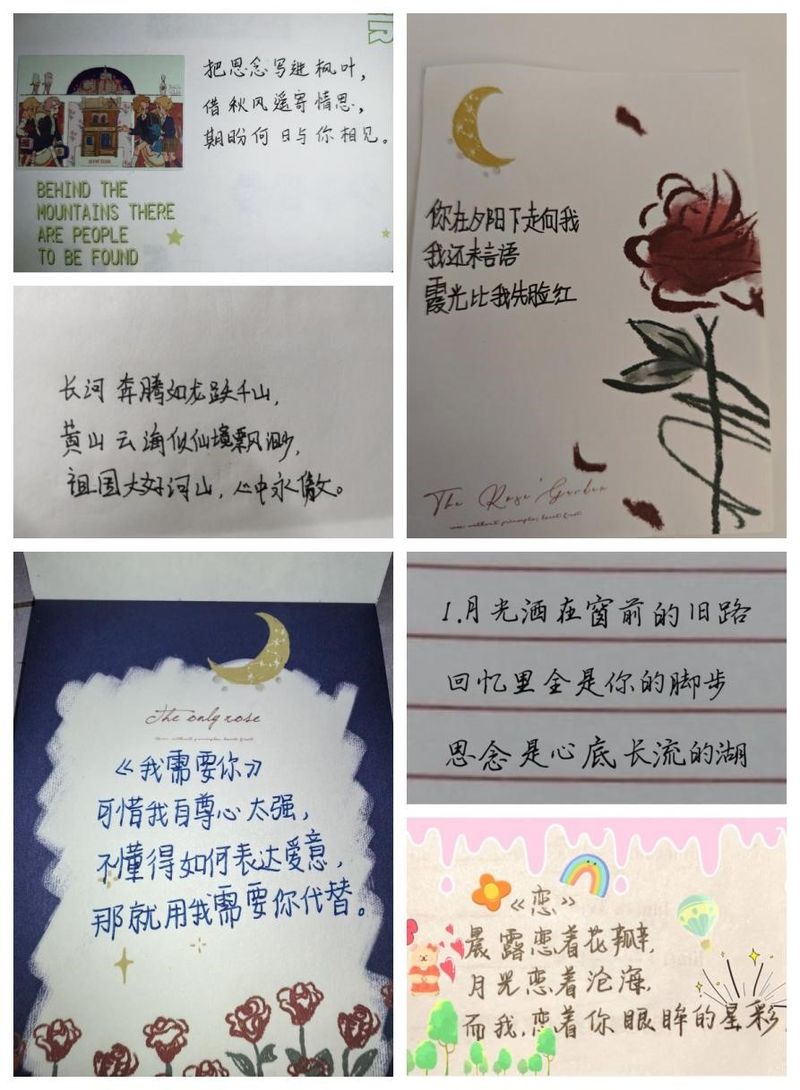 把思念写进枫叶，
借秋风遥寄情思，
期盼何日与你相见。
BEHIND THE
MOUNTAINS THERE
ARE PEOPLE
TO BE FOUND
长河奔腾如龙跃千山，
黄山云海似仙境飘渺，
祖国大好河山，心中永傲。
你在夕阳下走向我
我还未言语
霞光比我先脸红
The Rose Garden
The only rose
《我需要你》
可惜我自尊心太强，
不懂得如何表达爱意，
那就用我需要你代替。
1.月光洒在窗前的旧路
回忆里全是你的脚步
思念是心底长流的湖
《恋》
晨露恋着花瓣，
月光恋着沧海，
而我，恋着你眼眸的星彩